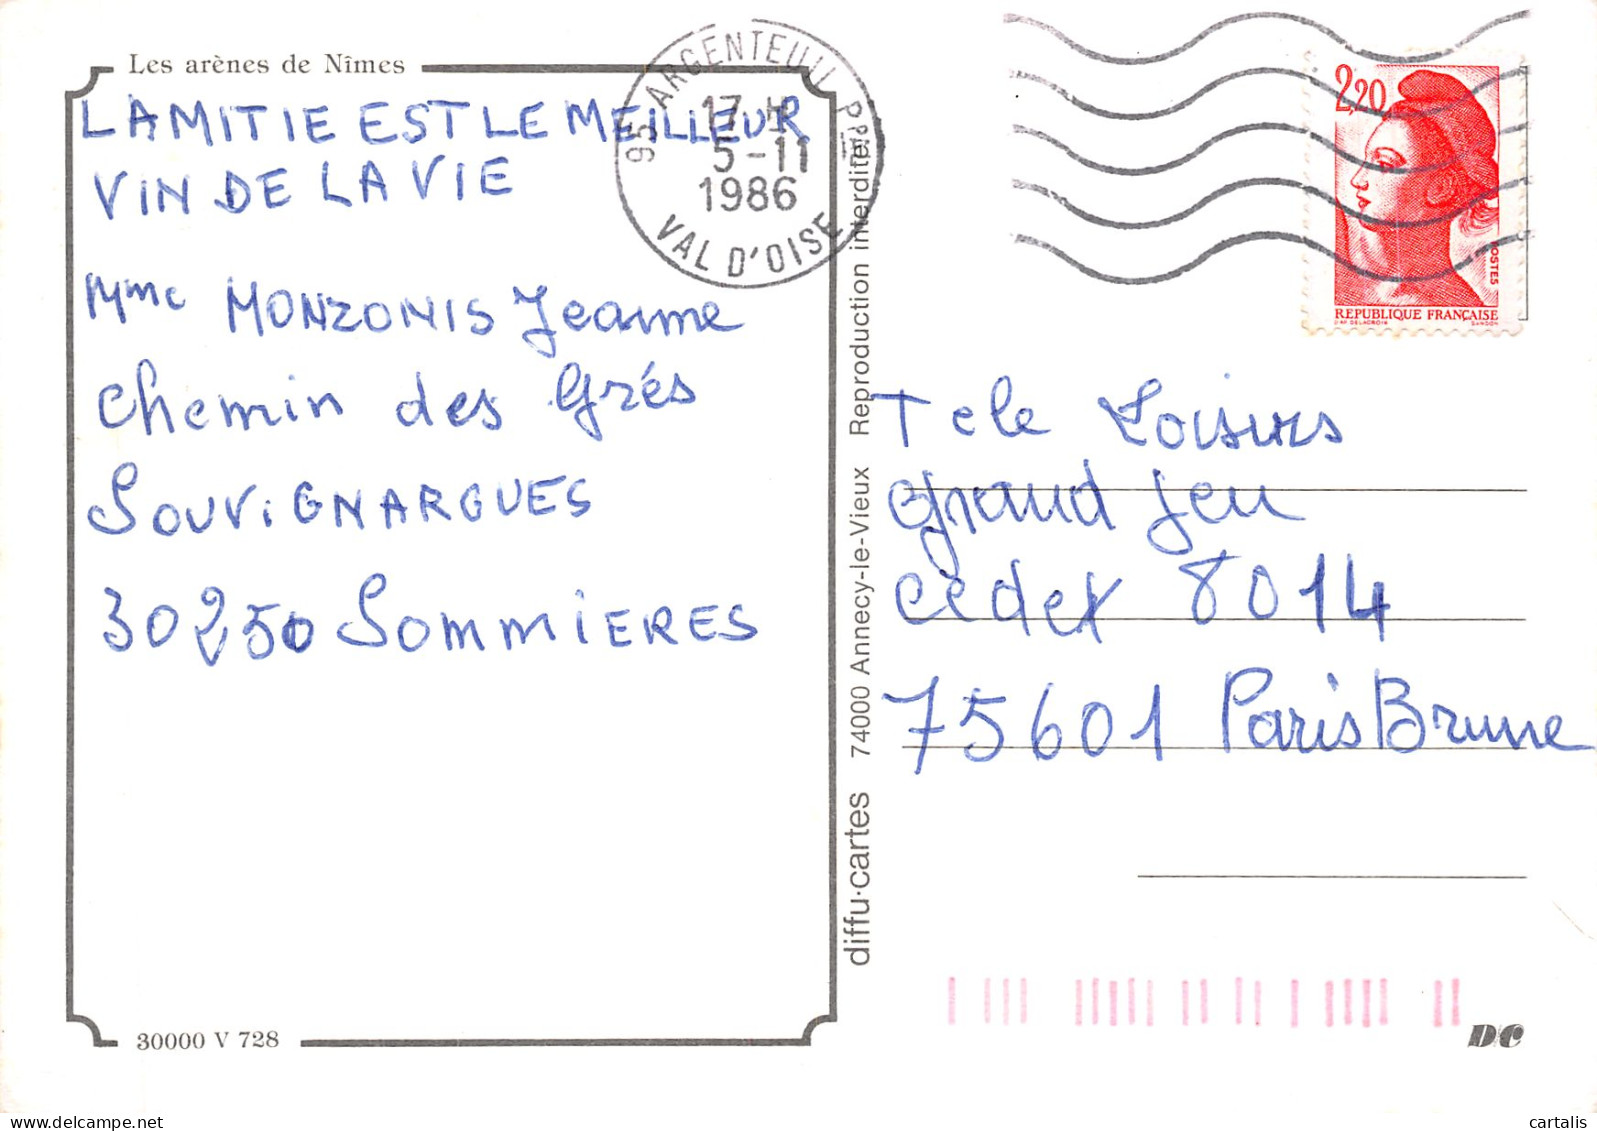 Les arènes de Nîmes
LAMITIE EST LE MEILLEUR
VIN DE LA VIE
Mme MONZONIS Jeanne
Chemin des Grés
SOUVIGNARGUES
30250 SOMMIERES
30000 V 728
95 ARGENTEUIL P.PAL
17 H
5-11
1986
VAL D'OISE
diffu·cartes 74000 Annecy-le-Vieux Reproduction interdite
2,20
POSTES
REPUBLIQUE FRANÇAISE
D'AP. DELACROIX GANDON
Tele Loisirs
grand Jeu
cedex 8014
75601 Paris Brune
DC
cartalis